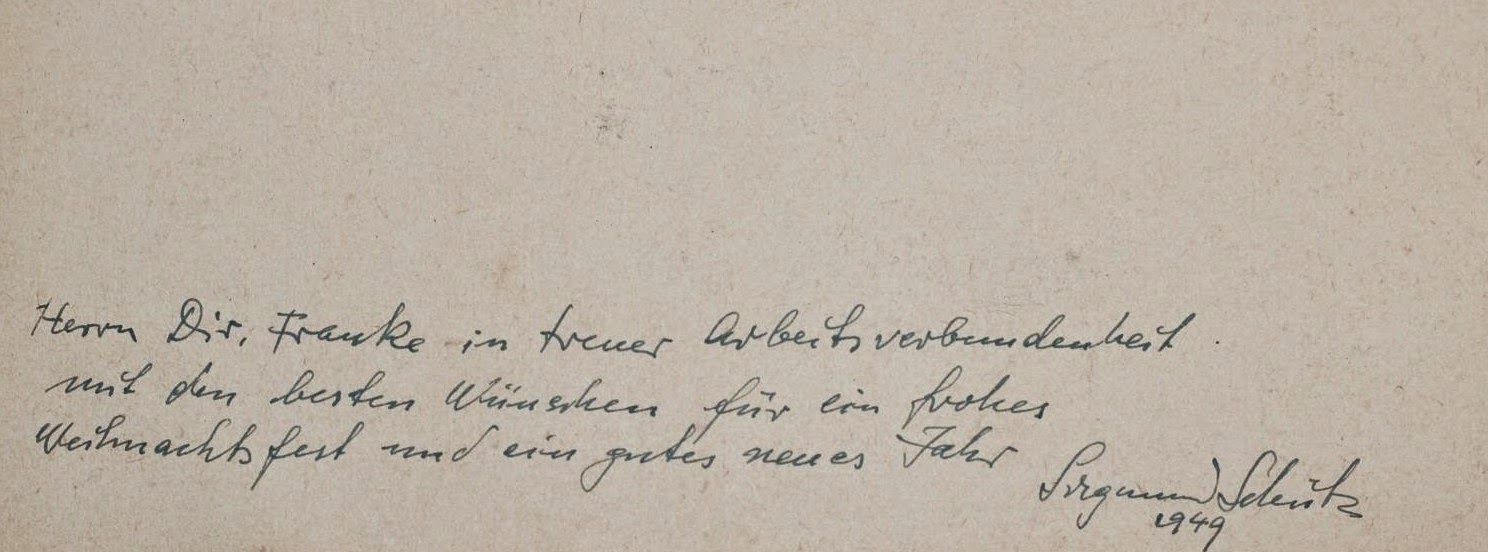 Herrn Dir. Franke in treuer Arbeitsverbundenheit
mit den besten Wünschen für ein frohes
Weihnachtsfest und ein gutes neues Jahr
Siegmund Schütz
1949